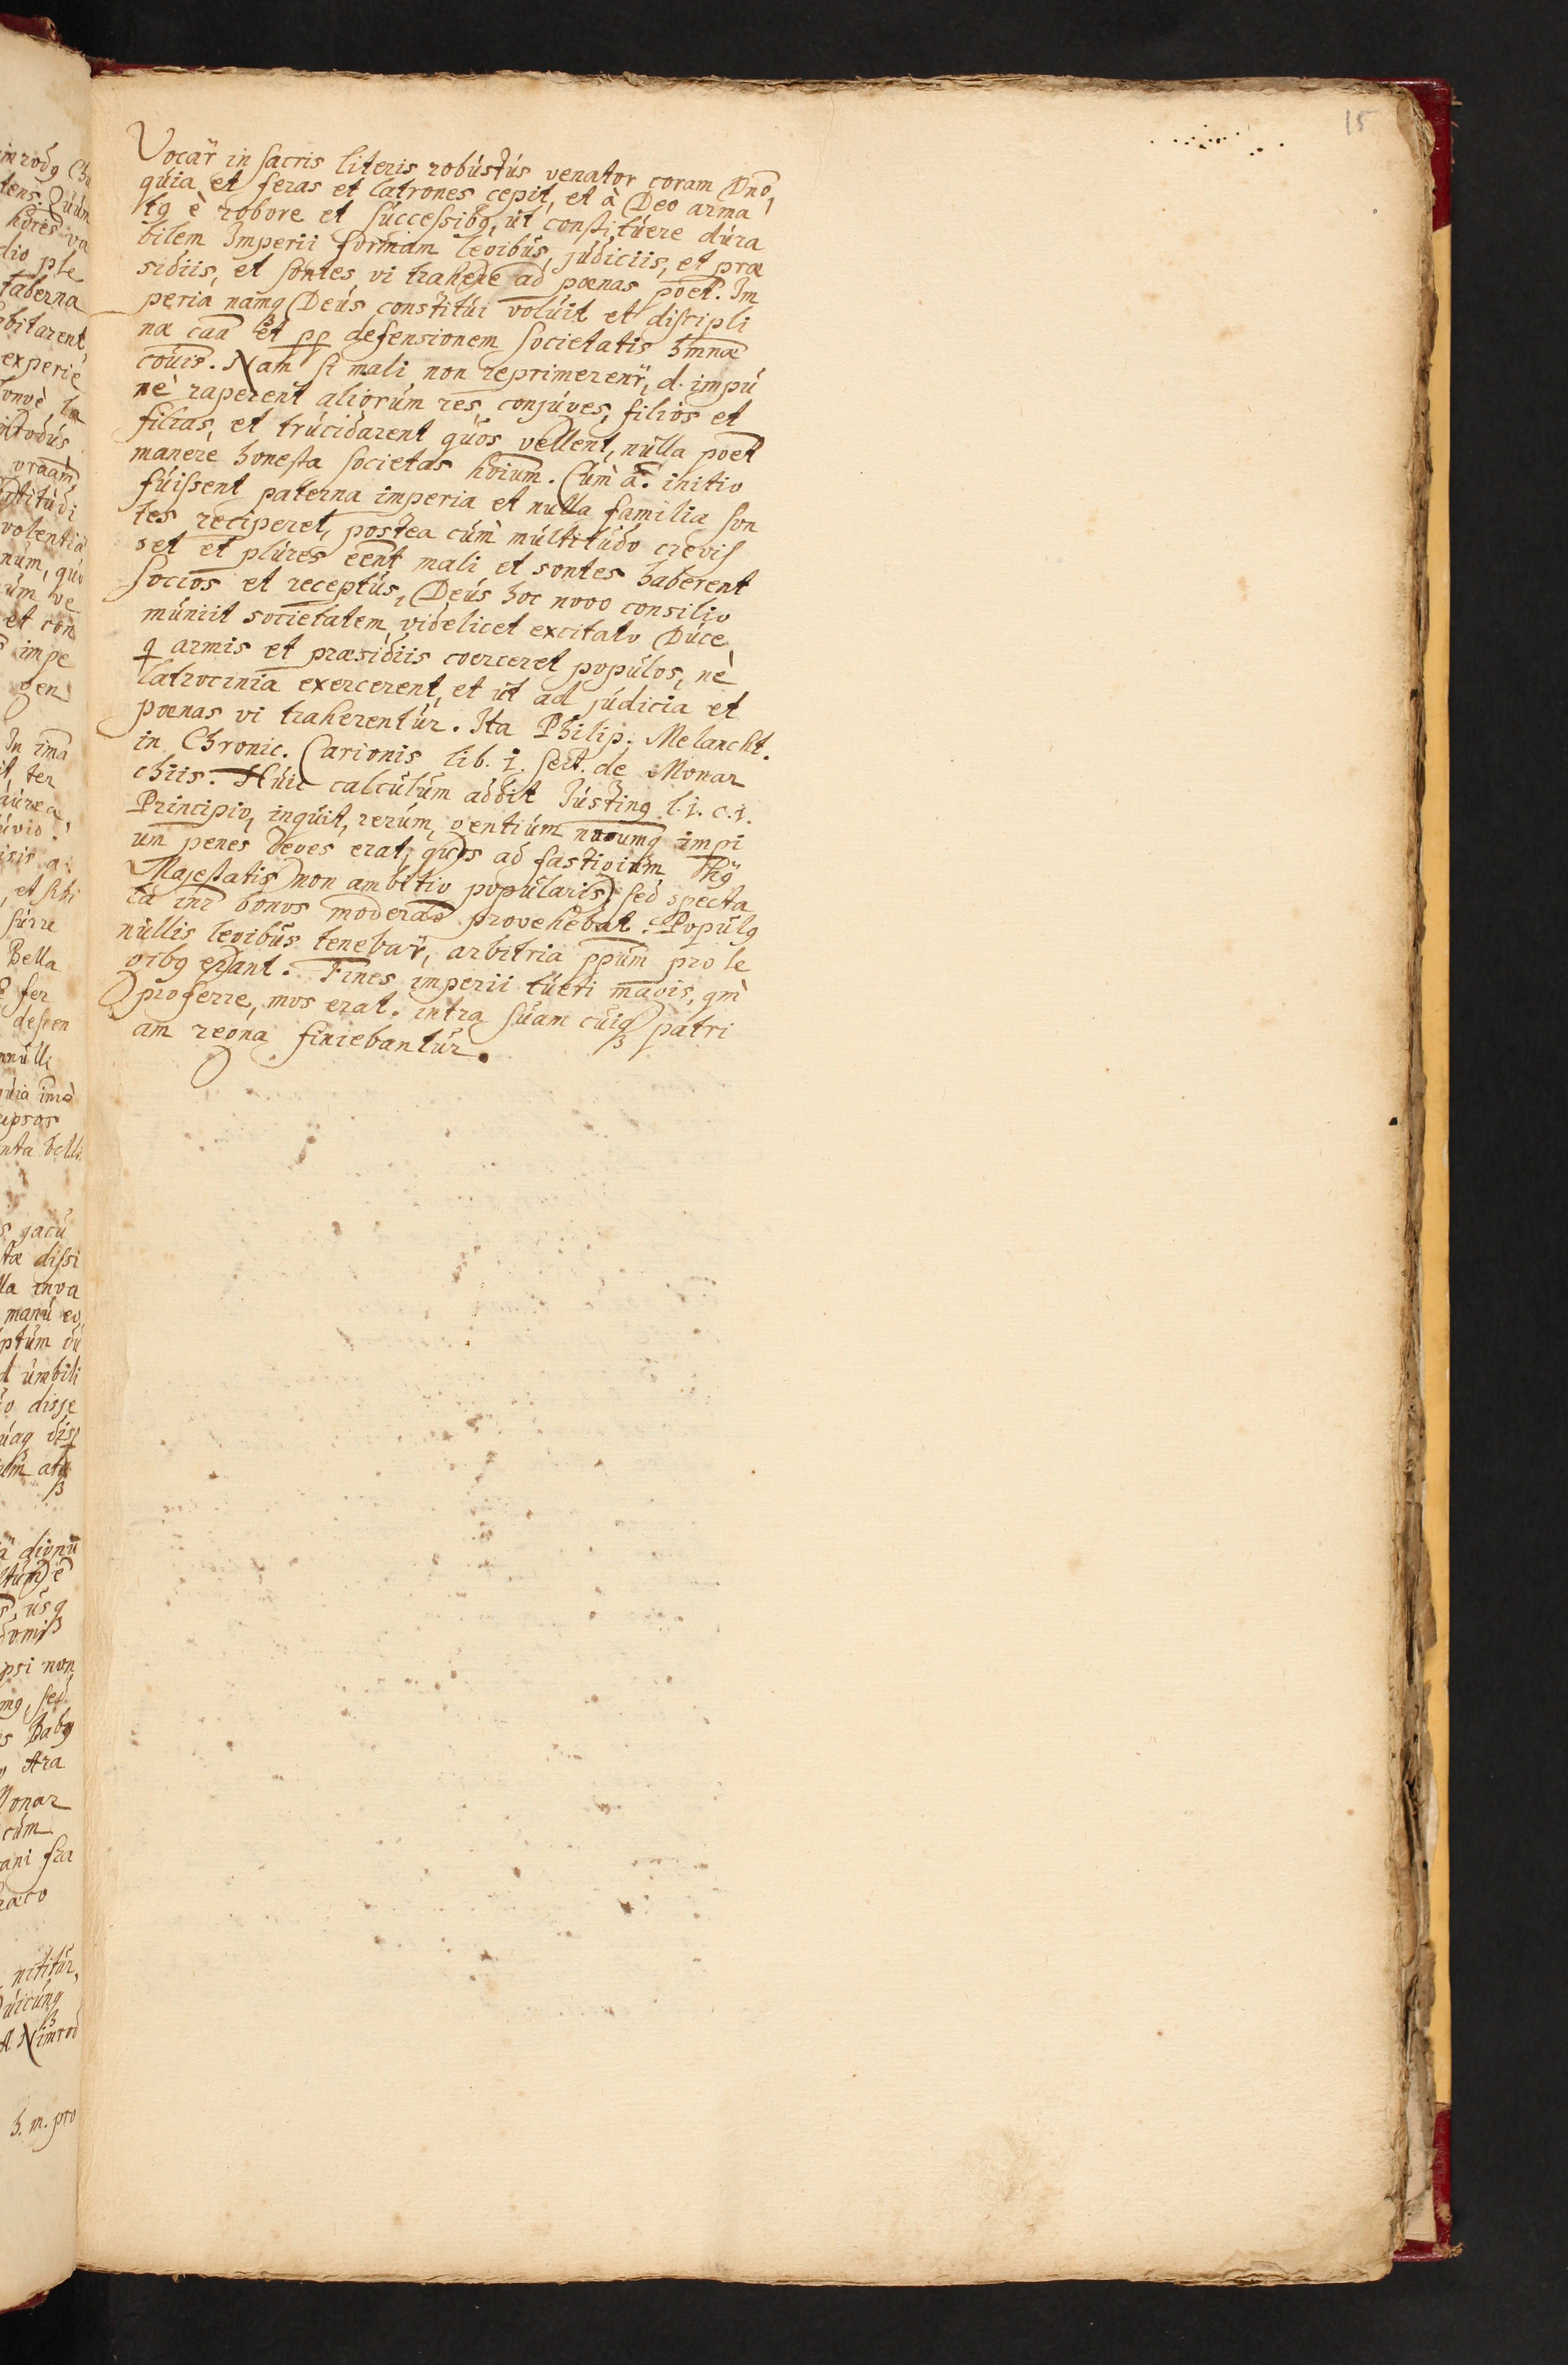 15
Vocar̃ in sacris literis robústús venator coram Dn̄o,
qúia et feras et latrones cepit, et à Deo arma
tq è robore et súccessibq, út constitúere dúra
bilem Imperii formam legibús, júdiciis, et præ
sidiis, et sontes vi trahere ad pœnas poēt. Im
peria namq Deús constitúi volúit et discipli
næ caā et pp defensionem societatis hmnæ
cōuis. Nam si mali non reprimerenr̃, d. impú
nè raperent aliorúm res, conjúges, filios et
filias, et trúcidarent qúos vellent, núlla poēt
manere honesta societas hōium. Cúm à. initio
fúissent paterna imperia et nulla familia son
tes reciperet, postea cúm múltitúdo crevis
set et plúres eēnt mali et sontes haberent
socios et receptús, Deús hoc novo consilio
múniit societatem, videlicet excitato Dúce,
q armis et præsidiis coerceret populos, nè
latrocinia exercerent, et út ad júdicia et
pœnas vi traherentúr. Ita Philip. Melancht.
in Chronic. Carionis lib. i. sect. de Monar
chiis. Húic calcúlúm addit Jústinq l. i. c. i.
Principio, inqúit, rerúm, gentiúm nōoumq impi
um penes Reges erat, qúos ad fastigiúm
Majestatis non ambitio popúlaris, sed specta
ta inr̃ bonos moderāo provehebat. Popúlq
núllis legibús tenebar̃, arbitria ppúm pro le
gibq erant. Fines imperii túeri magis, qm̀
proferre, mos erat. intra súam cúiq patri
am regna finiebantúr.